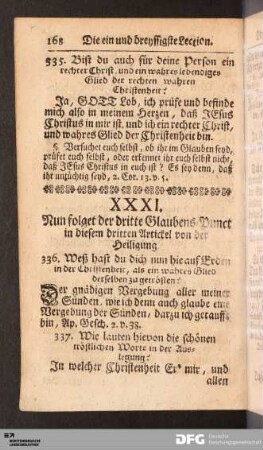 168 Die ein und dreyssigste Lection.
335. Bist du auch für deine Person ein
rechter Christ, und ein wahres lebendiges
Glied der rechten wahren
Christenheit?
Ja, GOTT Lob, ich prüfe und befinde
mich also in meinem Hertzen, daß JEsus
Christus in mir ist, und ich ein rechter Christ,
und wahres Glied der Christenheit bin.
§. Versuchet euch selbst, ob ihr im Glauben seyd,
prüfet euch selbst, oder erkennet ihr euch selbst nicht,
daß JEsus Christus in euch ist? Es sey denn, daß
ihr untüchtig seyd, 2. Cor. 13. v. 5.
XXXI.
Nun folget der dritte Glaubens-Punct
in diesem dritten Artickel von der
Heiligung
336. Weß hast du dich nun hie auf Erden
in der Christenheit, als ein wahres Glied
derselben zu getrösten?
Der gnädigen Vergebung aller meiner
Sünden, wie ich denn auch glaube eine
Vergebung der Sünden, darzu ich getauft
bin, Ap. Gesch. 2. v. 38.
337. Wie lauten hievon die schönen
tröstlichen Worte in der Aus-
legung?
In welcher Christenheit Er* mir, und
allen
DFG Deutsche
Forschungsgemeinschaft